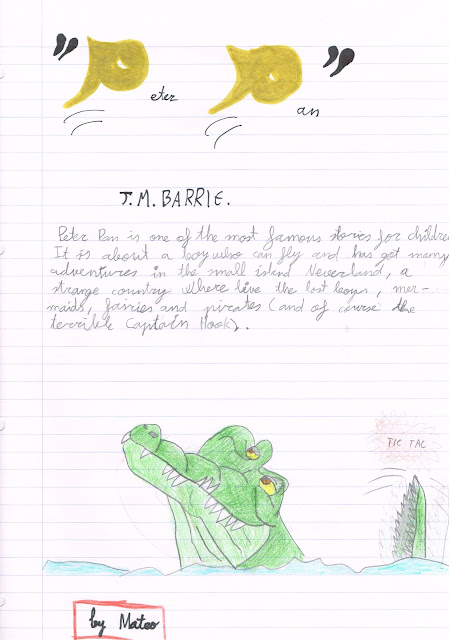 "Peter Pan"
J.M. BARRIE.
Peter Pan is one of the most famous stories for children
It is about a boy who can fly and has got many
adventures in the small island Neverland, a
strange country where live the lost boys, mer-
maids, fairies and pirates (and of course the
terrible Captain Hook).
TIC TAC
by Mateo